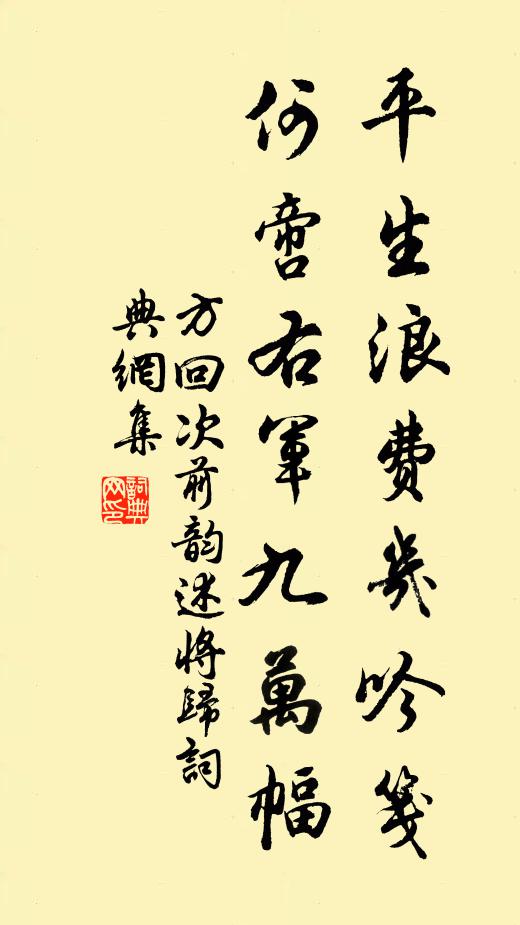 平生浪費幾吟箋
何啻右軍九萬幅
方回次前韵述將歸詞
典網集
詞典網印